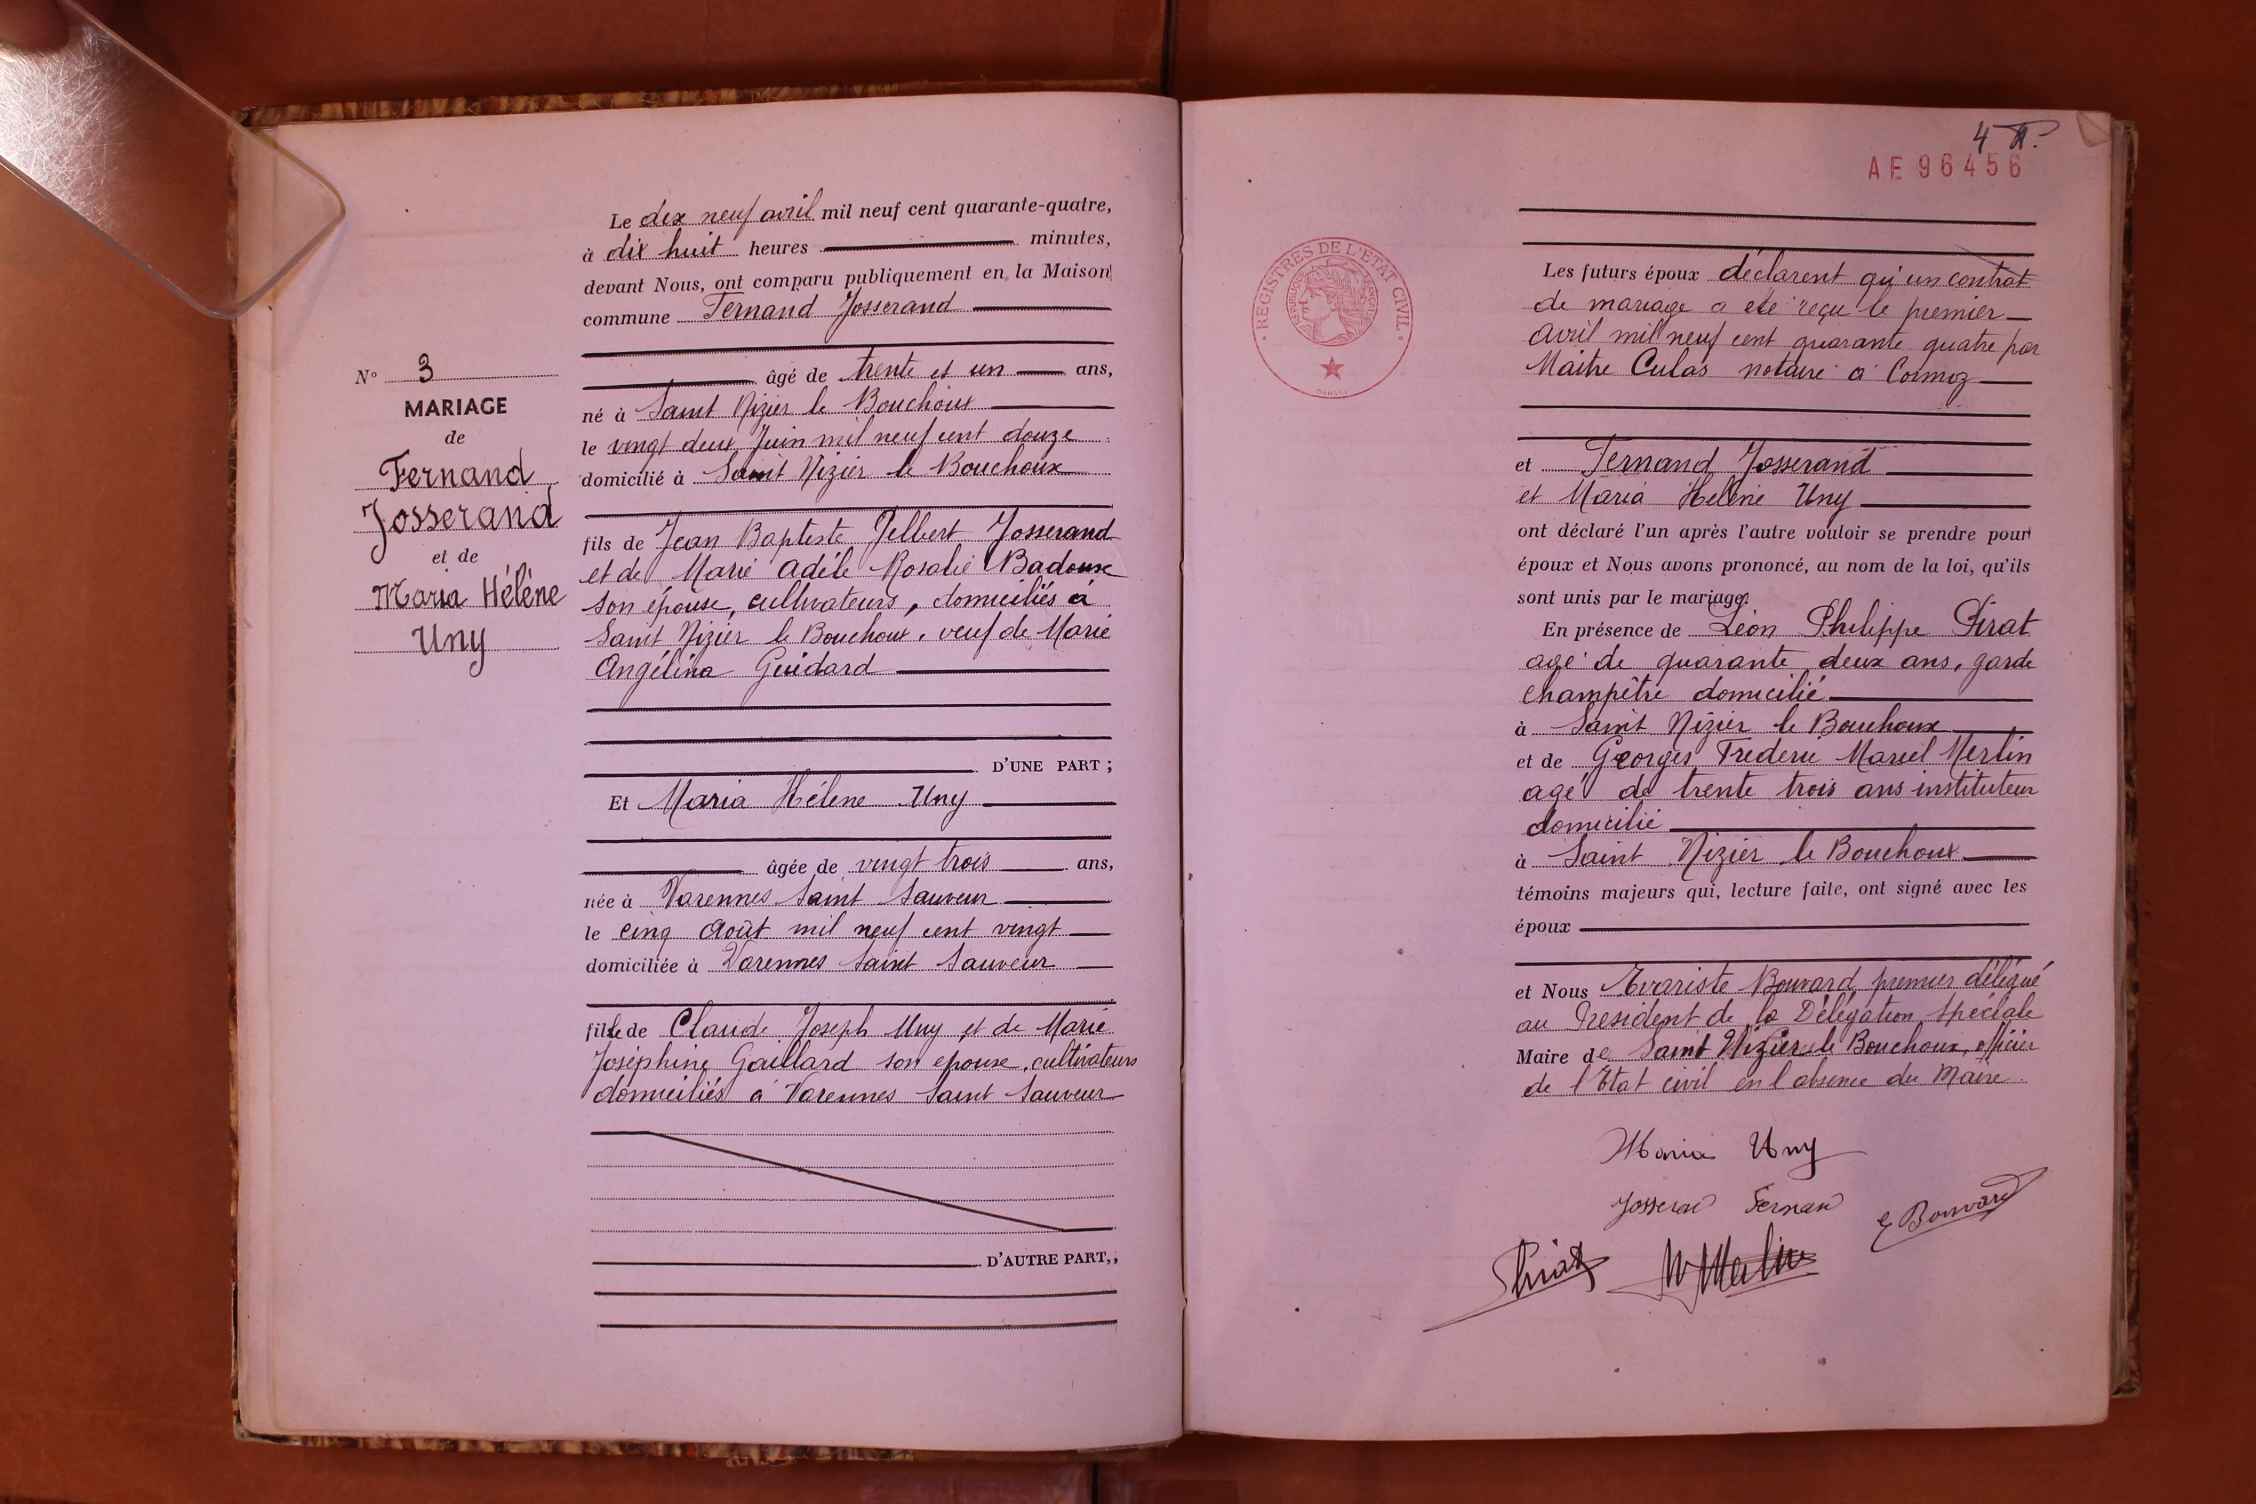 Le dix neuf avril mil neuf cent quarante-quatre,
à dix huit heures minutes,
devant Nous, ont comparu publiquement en la Maison
commune Fernand Josserand
âgé de trente et un ans,
né à Saint Nizier le Bouchoux
le vingt deux Juin mil neuf cent douze
domicilié à Saint Nizier le Bouchoux
fils de Jean Baptiste Josserand
et de Marie Adéle Rosalie Badoux
son épouse, cultivateurs, domiciliés à
Saint Nizier le Bouchoux, veuf de Marie
Angélina Guidard
D'UNE PART ;
Et Maria Hélene Uny
âgée de vingt trois ans,
née à Varennes Saint Sauveur
le cinq Août mil neuf cent vingt
domiciliée à Varennes Saint Sauveur
fille de Claude Joseph Uny et de Marie
Joséphine Gaillard son epouse, cultivateurs
domiciliés à Varennes Saint Sauveur
D'AUTRE PART,,
N° 3
MARIAGE
de
Fernand
Josserand
et de
Maria Hélène
Uny
4
AE 96456
REGISTRES DE L'ETAT CIVIL
Les futurs époux déclarent qu'un contrat
de mariage a été reçu le premier
avril mil neuf cent quarante quatre par
Maitre Culas notaire à Cormoz
et Fernand Josserand
et Maria Helene Uny
ont déclaré l'un après l'autre vouloir se prendre pour
époux et Nous avons prononcé, au nom de la loi, qu'ils
sont unis par le mariage.
En présence de Léon Philippe Pirat
agé de quarante deux ans, garde
champêtre domicilié
à Saint Nizier le Bouchoux
et de Georges Frederic Marcel Merlin
agé de trente trois ans instituteur
domicilié
à Saint Nizier le Bouchoux
témoins majeurs qui, lecture faite, ont signé avec les
époux
et Nous Evariste Bouvard premier délégué
au Président de la Délégation Spéciale
Maire de Saint Nizier le Bouchoux, officier
de l'Etat civil en l'absence du Maire
Maria Uny
Josserand Fernand
E Bouvard
Pirat
Merlin